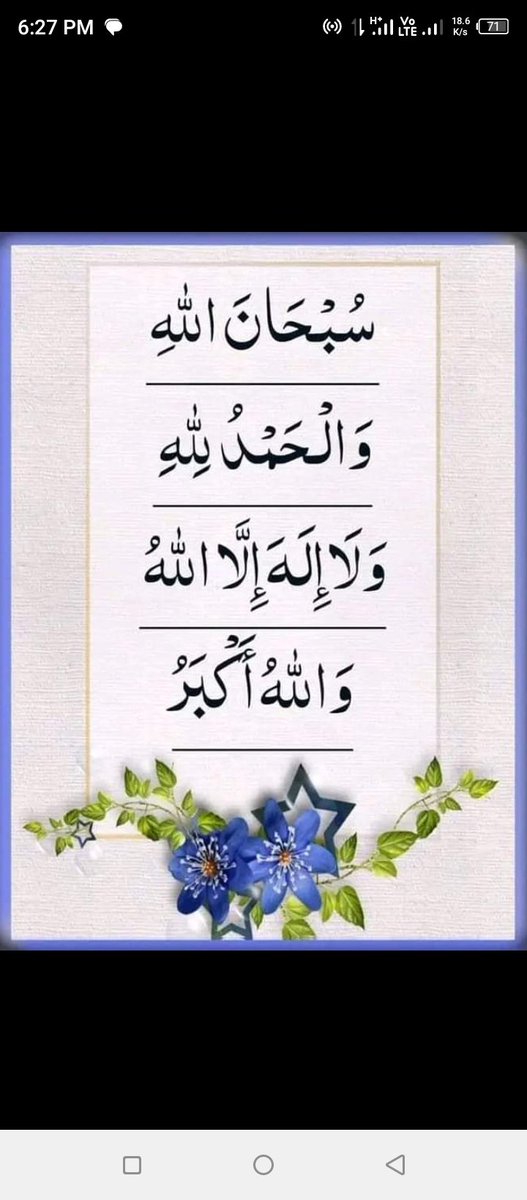 6:27 PM H+ Vo LTE 18.6 K/s 71
سُبْحَانَ اللهِ
وَالْحَمْدُ لِلّٰهِ
وَلَا إِلَهَ إِلَّا اللهُ
وَاللهُ أَكْبَرُ